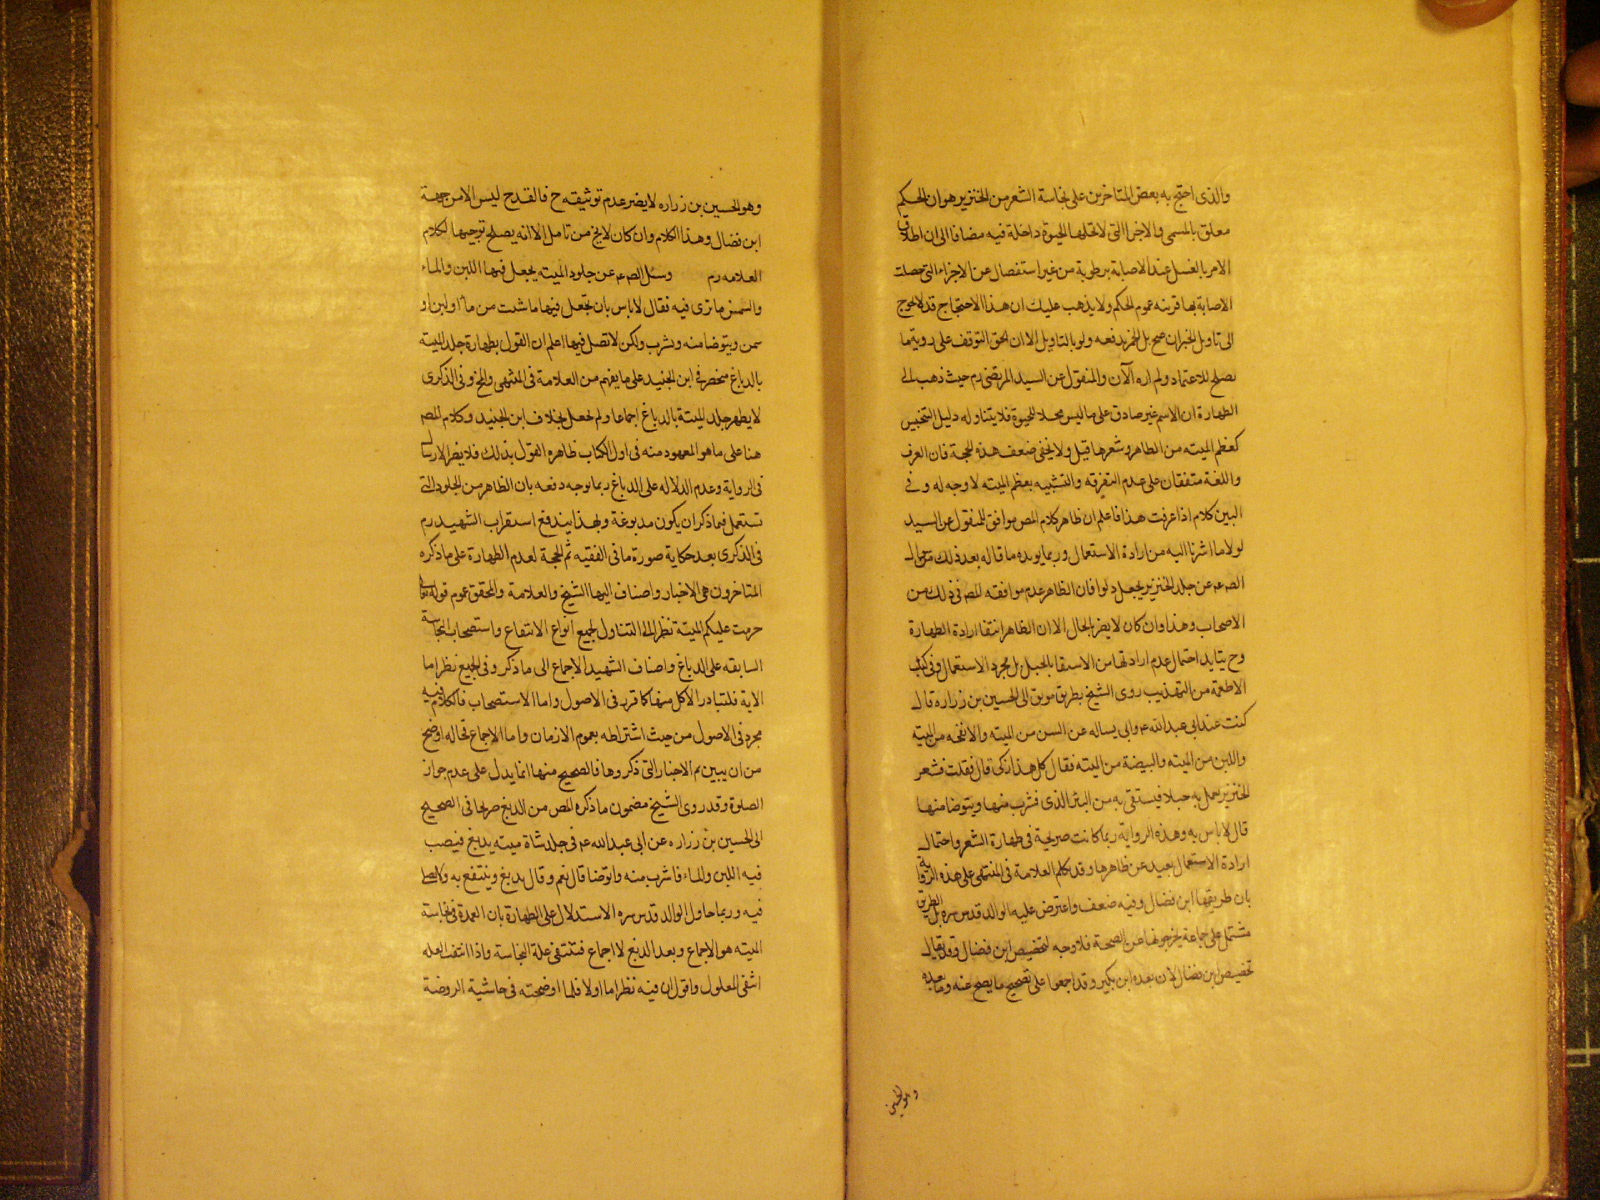 والذى احتج به بعض المتاخرين على نجاسة الشعر من الخنزير هو ان الحكم
معلق بالمسمى والاجزا التى لا تحلها الحيوة داخلة فيه مضافا الى ان اطلاق
الامر بالغسل عند الاصابة برطوبة من غير استفصال عن الاجزاء التى حصلت
الاصابة بها قرينه عموم الحكم ولا يذهب عليك ان هذا الاحتجاج قد لا يحوج
الى تاويل الخبر ان صح بل الخبر يدفعه ولو بالتاويل الا ان الحق التوقف على روية ما
يصلح للاعتماد ولم اره الآن والمنقول عن السيد المرتضى رم حيث ذهب الى
الطهارة ان الاسم غير صادق على ما ليس محلا للحيوة فلا يتناوله دليل التنجيس
كعظم الميته من الطاهر وشعرها قيل ولا يخفى ضعف هذه الحجة فان العرف
واللغة متفقان على عدم التفرقه والتشبيه بعظم الميته لا وجه له وفى
البين كلام اذا عرفت هذا فاعلم ان ظاهر كلام المص موافق للمنقول عن السيد
لولا ما اشرنا اليه من ارادة الاستعمال وربما يويده ما قاله بعد ذلك من
الصم عم عن جلد الخنزير يجعل دلوا فان الظاهر عدم موافقه للمص فى ذلك من
الاصحاب وهذا وان كان لا يضر بالحال الا ان الظاهر انتفا ارادة الطهارة
وح يتايد احتمال عدم ارادتها من الاستقا بالحبل بل مجرد الاستعمال وفى كتاب
الاطعمة من التهذيب روى الشيخ بطريق موثق الى الحسين بن زراره قال
كنت عند ابى عبد الله عم وابى يساله عن السن من الميته والانفحه من الميته
واللبن من الميته والبيضة من الميته فقال كل هذا زكى قال فقلت فشعر
الخنزير يعمل به حبلا فيستقى به من البئر الذى فشرب منها ويتوضا منها
قال لا باس به وهذه الرواية ربما كانت صريحة فى طهارة الشعر واحتمال
ارادة الاستعمال بعيد عن ظاهرها وقد تكلم العلامة فى المنتهى على هذه الرواية
بان طريقها ابن فضال وفيه ضعف واعترض عليه الوالد قدس سره بل الطريق
مشتمل على جماعة يخرجونها عن الصحة فلا وجه لتخصيص ابن فضال وقد يقال
تخصيص ابن فضال لان بعده ابن بكير وقد اجمعوا على تصحيح ما يصح عنه وما بعده
وهو الحسين
وهو الحسين بن زراره لا يضر عدم توثيقه ح فالقدح ليس الا من جهة
ابن فضال وهذا الكلام وان كان لا يخ من تامل الا انه يصلح توجيها لكلام
العلامه رم وسئل الصم عم عن جلود الميته يجعل فيها اللبن والماء
والسمن ما ترى فيه فقال لا باس بان تجعل فيها ما شئت من ماء او لبن او
سمن ويتوضا منه وشرب ولكن لا تصل فيها اعلم ان القول بطهارة جلد الميته
بالدباغ منحصر فى ابن الجنيد على ما يفهم من العلامة فى المنتهى والمخ وفى الذكرى
لا يطهر جلد الميتة بالدباغ اجماعا ولم نحعل بخلاف ابن الجنيد وكلام المص
هنا على ما هو المعهود منه فى اول الكتاب ظاهره القول بذلك فلا يضر الارسا
فى الرواية وعدم الدلاله على الدباغ ربما توجه دفعه بان الظاهر من الجلود التى
تستعمل فيما ذكر ان يكون مدبوغة وبهذا يندفع استقراب الشهيد رم
فى الذكرى بعد حكاية صورة ما فى الفقيه ثم الحجة لعدم الطهارة على ما ذكره
المتاخرون هى الاخبار واضاف اليها الشيخ والعلامة والمحقق عموم قوله تعا
حرمت عليكم الميتة نظرا الى التناول لجميع انواع الانتفاع واستصحاب النجاسة
السابقه على الدباغ واضاف الشهيد الاجماع الى ما ذكر وفى الجميع نظر اما
الاية فلتبادر الاكل منها كما قرر فى الاصول واما الاستصحاب فالكلام فيه
مجرد فى الاصول من حيث اشتراطه بعموم الازمان واما الاجماع فحاله اوضح
من ان يبين ثم الاخبار التى ذكروها فالصحيح منها انما يدل على عدم جواز
الصلوة وقد روى الشيخ مضمون ما ذكره المص من الدبغ صريحا فى الصحيح
الى الحسين بن زراره عن ابى عبد الله عم فى جلد شاة ميته يدبغ فيصب
فيه اللبن والماء فاشرب منه واتوضا قال نعم وقال يدبغ وينتفع به ولا يصلى
فيه وربما حاول الوالد قدس سره الاستدلال على الطهارة بان العمدة فى نجاسة
الميته هو الاجماع وبعد الدبغ لا اجماع فتنتفى علة النجاسة واذا انتفت العله
انتفى المعلول واقول ان فيه نظرا اما اولا فلما اوضحته فى حاشية الروضة